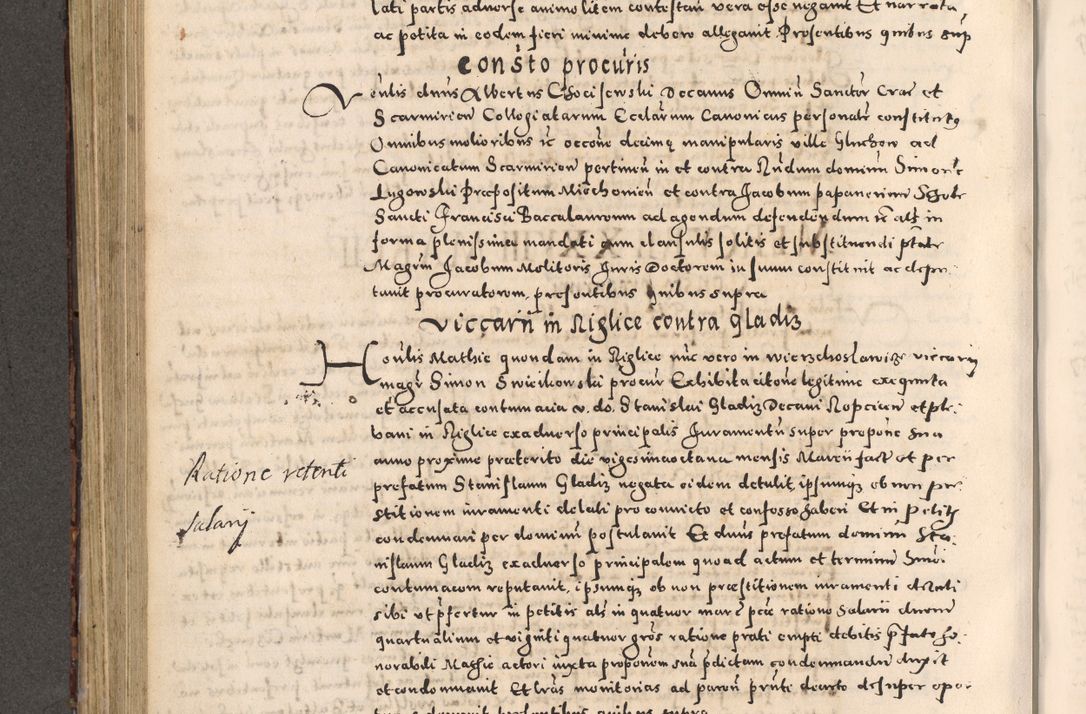 lati partis adverse animo litem contestan vera esse negavit Et narrata
ac petita in eodem fieri minime debere allegavit Presentibus quibus sup
consto procuris
Venlis dnus Albertus Chocisewski Decanus Omniu Sanctor Crac et
Scarmirien Collegiatarum Ecclarum Canonicus personalr constitutq
Omnibus melioribus ic occone decimę manipularis ville Gluchow ad
Canonicatum Scarmirien pertinen in et contra Nudum dominu Simone
Lugowski Prepositum Miechovien et contra Jacobum Schole
Sancti Francisci Baccalaureum ad agendum defendendum ic als in
forma plenissima mandati cum clausulis solitis et substituendi ptate
Magrm Jacobum Molitoris Juris Doctorem in suum constituit ac depu
tavit procuratorem, presentibus quibus supra
Viccarii in Riglice contra gladiz
Honlis Mathie quondam in Riglice nuc vero in wierzchoslawicze viccarij
magr Simon Swiecikowski procur Exhibita citone legitime exequuta
et accusata contumacia v. do. Stanislai Gladiz Decani Ropcicen et ple
bani in Riglice exadverso principalis Juramentu super propone sua
anno proxime preterito die vigesima octava mensis Marcii fact et per
prefatum Stanislaum Gladiz negata eidem detulit, ipsumqz ob non pre
stitionem iuramenti delati pro convicto et confesso haberi Et in petitis
condemnari per dominu postulavit Et dnus prefatum dominu Sta
nislaum Gladiz exadverso principalem quoad actum et terminu
contumacem reputavit, ipsumqz ob non prestitionem iuramenti delati
sibi ut pfertur in petitis als in quatuor marc pec ratione Salarii
quartualium et viginti quatuor gros ratione prati empti debitis pfato ho
norabili Mathie actori iuxta proponem sua pdictam condemnandu duxit
et condemnavit Et lras monitorias ad paron pnti decreto desuper
quibus supra
Ratione retenti
salarij